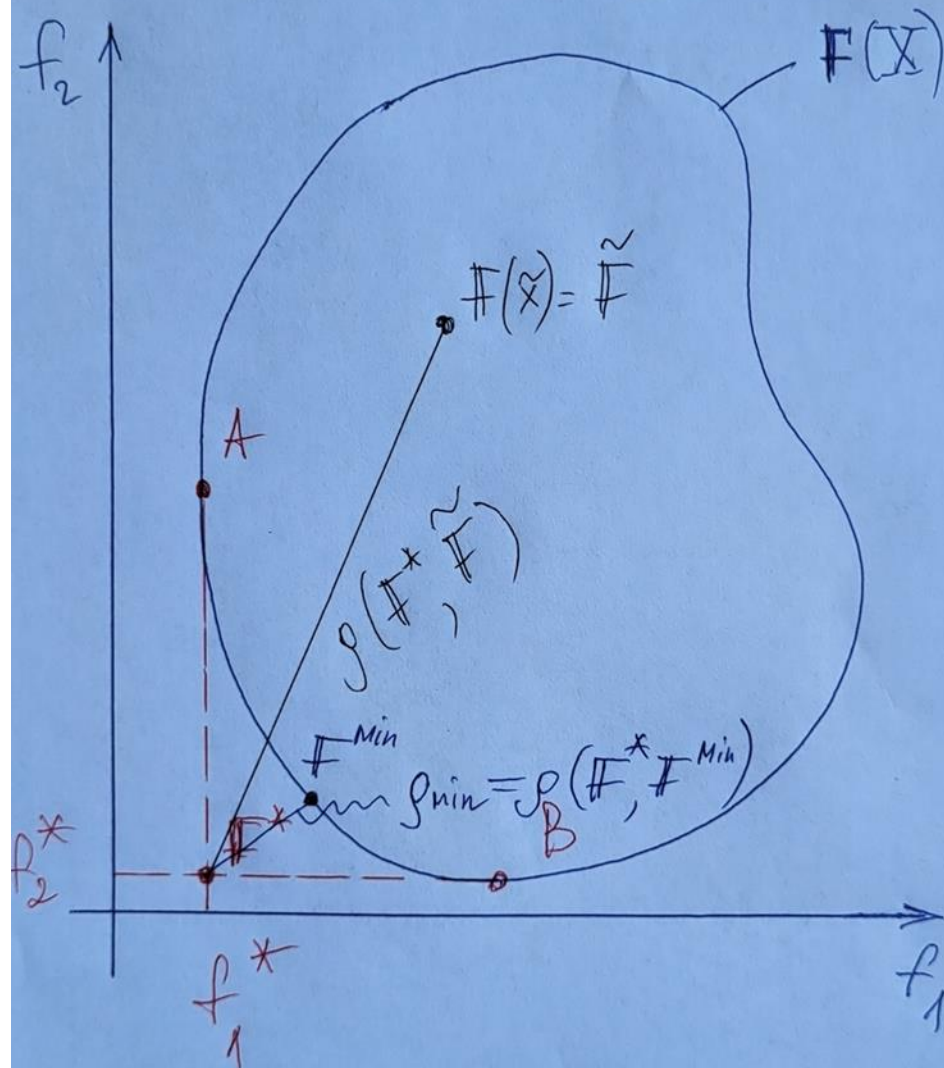 f₂
𝔽(X)
𝔽(x̃) = 𝔽̃
A
ρ(𝔽*, 𝔽̃)
𝔽ᴹⁱⁿ
ρmin = ρ(𝔽*, 𝔽ᴹⁱⁿ)
𝔽*
B
f₂*
f₁*
f₁